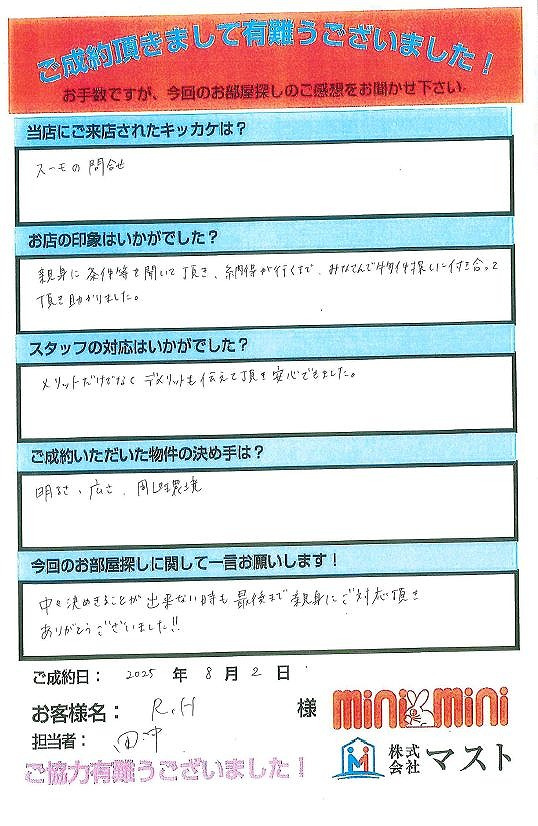 ご成約頂きまして有難うございました！
お手数ですが、今回のお部屋探しのご感想をお聞かせ下さい。
当店にご来店されたキッカケは？
スーモの問合せ
お店の印象はいかがでした？
親身に条件等を聞いて頂き、納得が行くまで、みなさんで物件探しに付き合って
頂き助かりました。
スタッフの対応はいかがでした？
メリットだけでなくデメリットも伝えて頂き安心できました。
ご成約いただいた物件の決め手は？
明るさ、広さ、周辺環境
今回のお部屋探しに関して一言お願いします！
中々決めきることが出来ない時も最後まで親身にご対応頂き
ありがとうございました!!
ご成約日： 2025 年 8 月 2 日
お客様名： R.H 様
mini mini
担当者： 田中
株式会社 マスト
ご協力有難うございました！